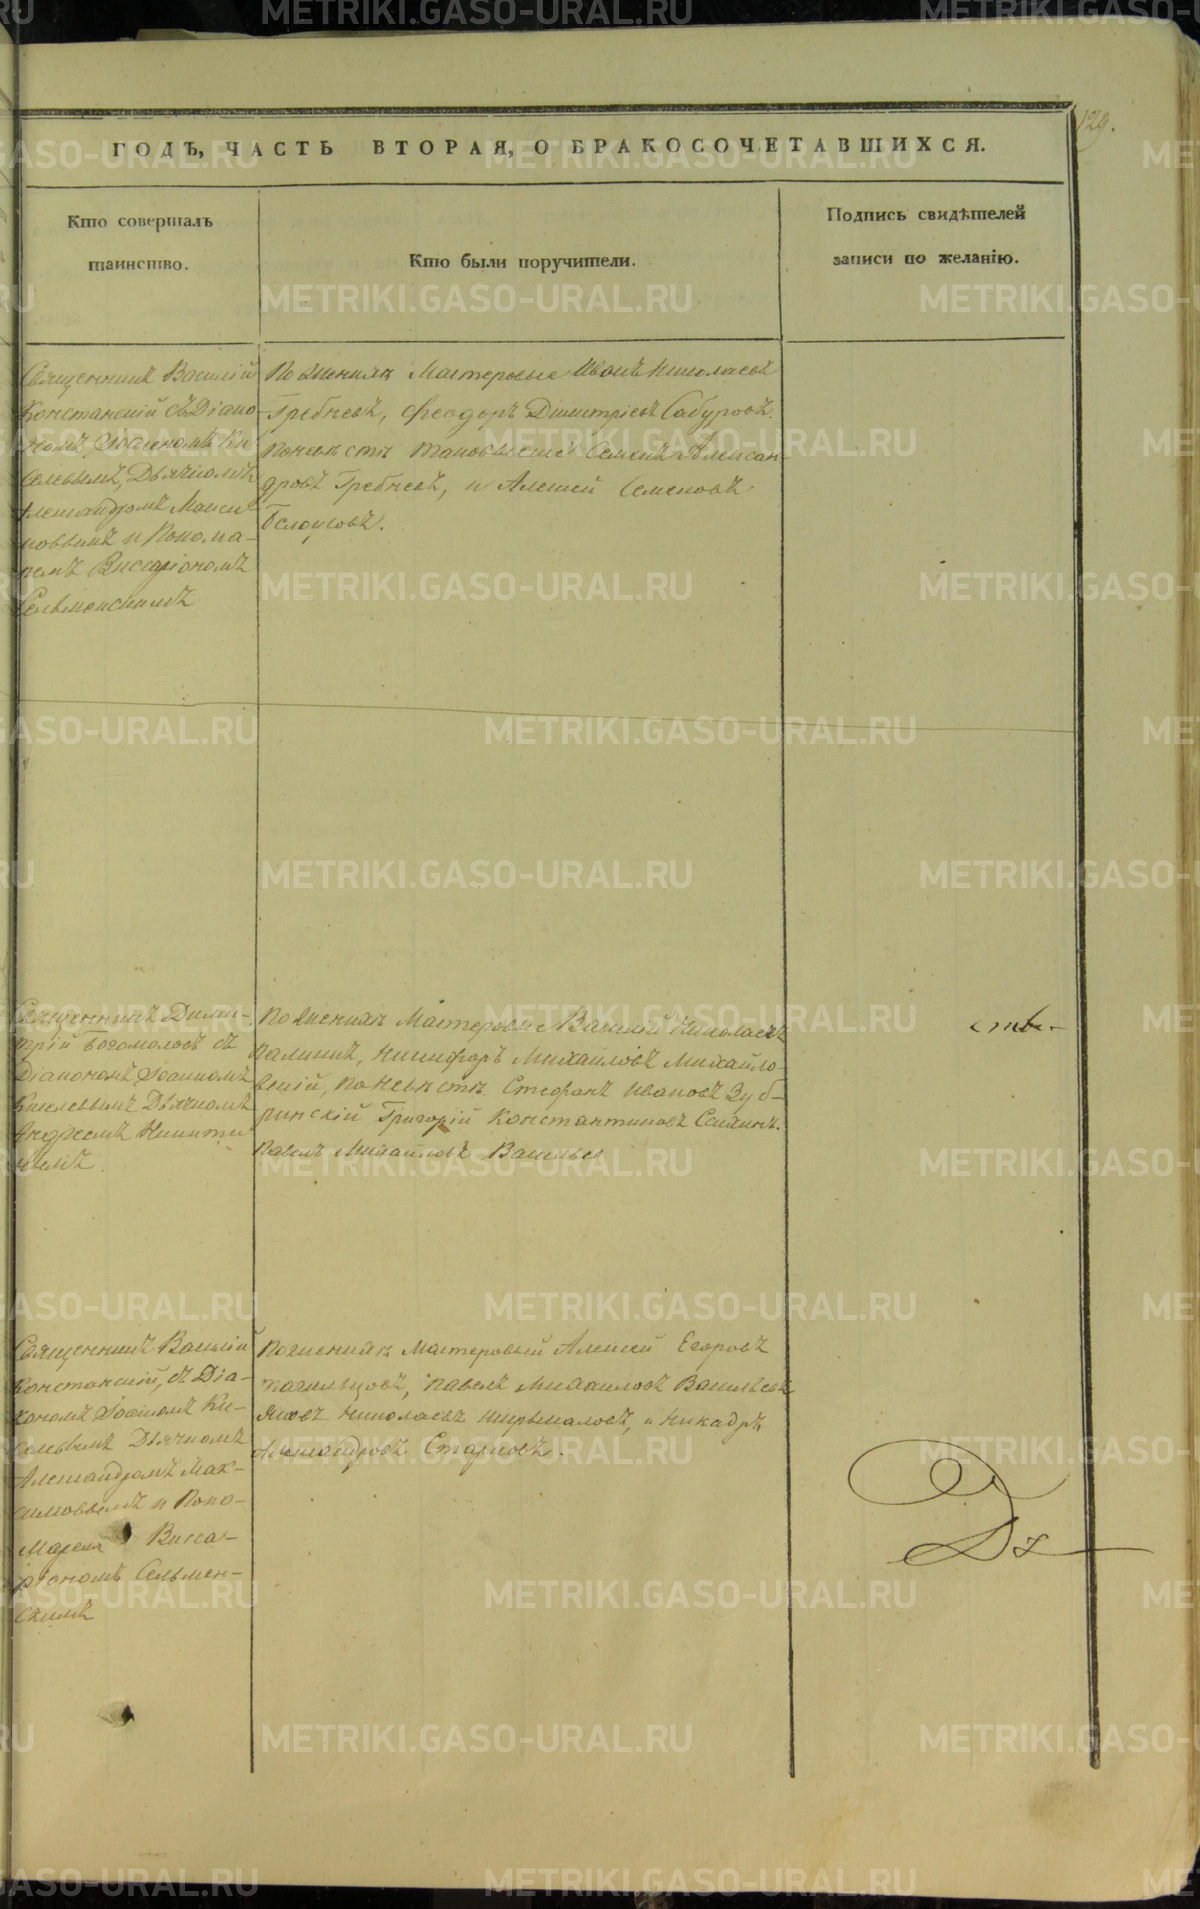 129.
ГОДЪ, ЧАСТЬ ВТОРАЯ, О БРАКОСОЧЕТАВШИХСЯ.
Кто совершалъ
таинство.
Кто были поручители.
Подпись свидѣтелей
записи по желанію.
Священникъ Василій
Констанскій съ Діако-
номъ Іоанномъ Ки
селевымъ, Дьячкомъ
Александромъ Макси
мовымъ и Понома-
ремъ Виссаріономъ
Сельменскимъ
По женихѣ Мастеровые Иванъ Николаевъ
Гребневъ, Феодоръ Димитріевъ Сабуровъ.
по невѣстѣ таковые Семенъ Алексан-
дровъ Гребневъ, и Алексей Семеновъ
Белоусовъ.
Священникъ Дими-
трій Богомоловъ съ
Діакономъ Іоанномъ
Киселевымъ Дьячкомъ
Андреемъ Никити
По женихѣ Мастеровые Василій Николаевъ
Калининъ, Никифоръ Михайловъ Михайло-
вскій, по невѣстѣ Стефанъ Ивановъ Зуб-
ринскій Григорій Константиновъ
Павелъ Михайловъ Васильев
ств-
Священникъ Василій
Констанскій, съ Діа-
кономъ Іоанномъ Ки-
селевымъ Дьячкомъ
Александромъ Мак-
симовымъ и Поно-
марем Висса-
ріономъ Сельмен-
скимъ
По женихѣ мастеровый Алексей Егоровъ
Павелъ Михаиловъ Васильевъ
Яковъ Николаевъ и Никадръ
Александровъ Старковъ.
METRIKI.GASO-URAL.RU